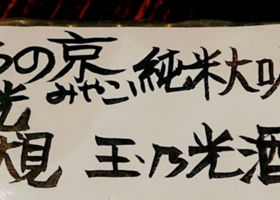 の京みやこ 純米大
光
見 玉乃光酒